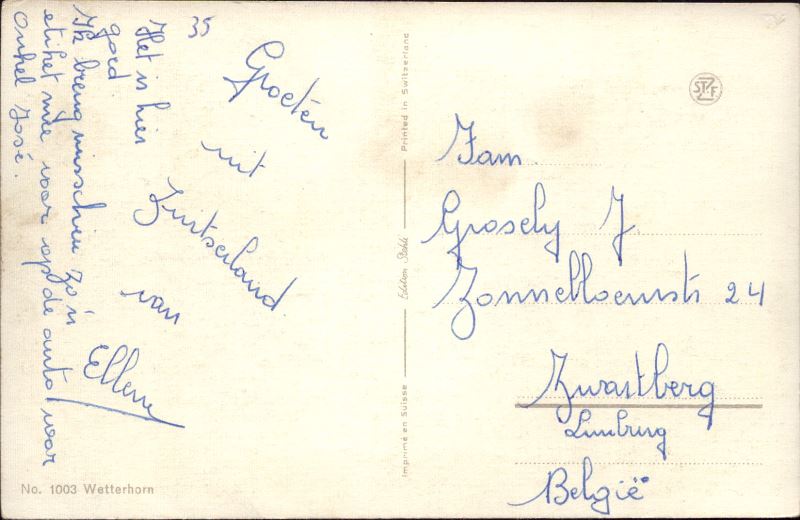 35
Groeten
uit
Zwitserland
van
Ellen
Het is hier
goed
Ik breng misschien zo'n
etiket mee voor op de auto voor
onkel José.
No. 1003 Wetterhorn
Imprimé en Suisse
Edition Stehli
Printed in Switzerland
STZF
Fam.
Grosely J
Zonnebloemstr 24
Zwartberg
Limburg
België